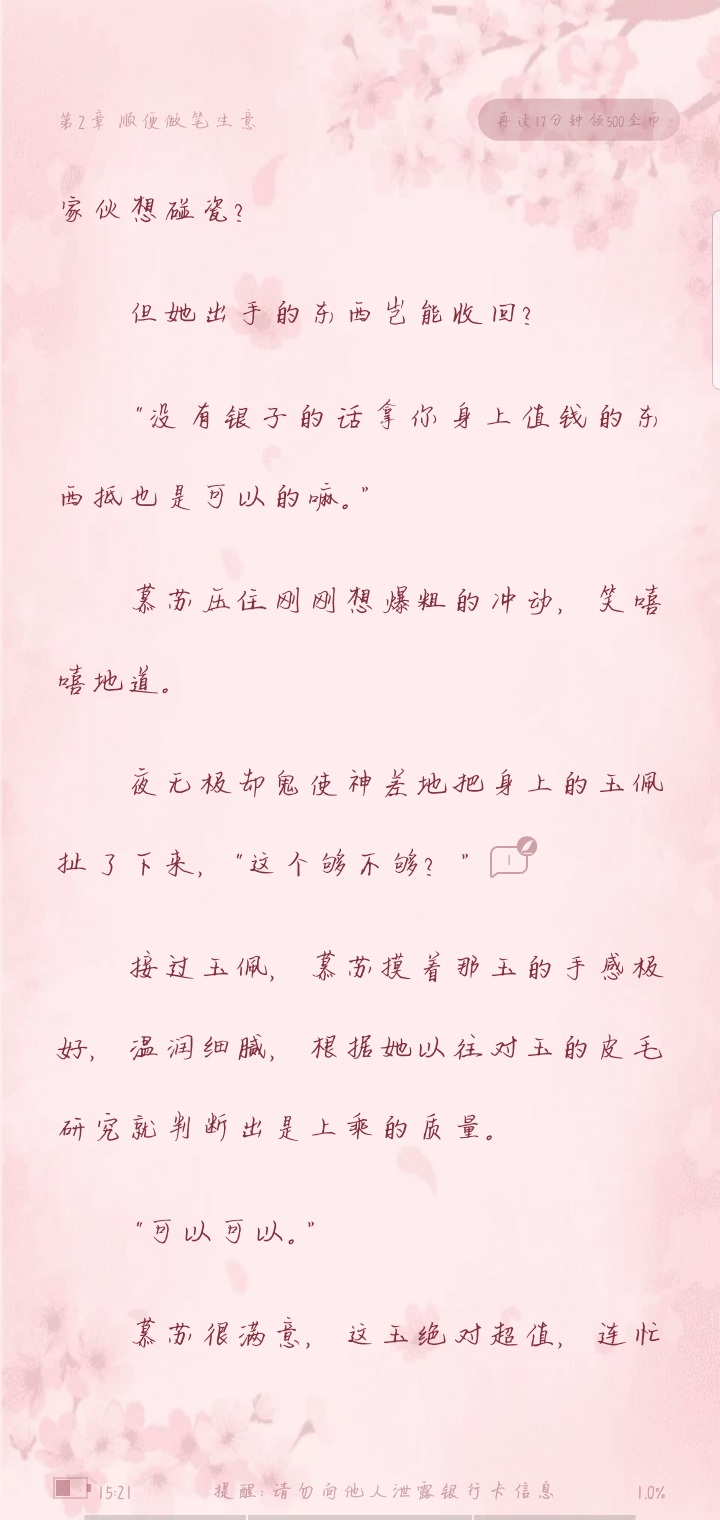 第2章 顺便做笔生意
再读17分钟领500金币
家伙想碰瓷？
但她出手的东西岂能收回？
“没有银子的话拿你身上值钱的东
西抵也是可以的嘛。”
慕苏压住刚刚想爆粗的冲动，笑嘻
嘻地道。
夜无极却鬼使神差地把身上的玉佩
扯了下来，“这个够不够？”
1
接过玉佩，慕苏摸着那玉的手感极
好，温润细腻，根据她以往对玉的皮毛
研究就判断出是上乘的质量。
“可以可以。”
慕苏很满意，这玉绝对超值，连忙
15:21
提醒：请勿向他人泄露银行卡信息
1.0%